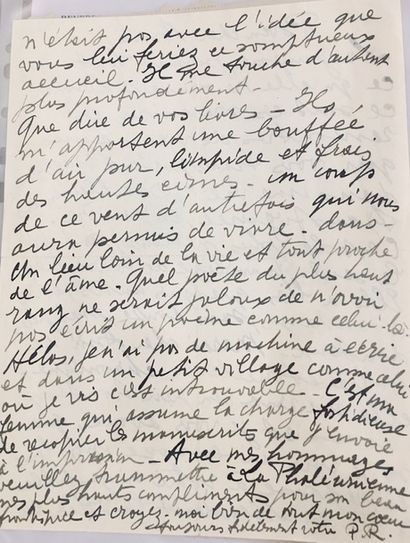 n'était pas avec l'idée que
vous lui feriez ce somptueux
accueil. Il me touche d'autant
plus profondément.
Que dire de vos livres – Ils
m'apportent une bouffée
d'air pur, limpide et frais
des hautes cimes – un coup
de ce vent d'autrefois qui nous
aura permis de vivre – dans –
Un lieu loin de la vie et tout proche
de l'âme. Quel poète du plus haut
rang ne serait jaloux de n'avoir
pas écrit un poème comme celui-là.
Hélas, je n'ai pas de machine à écrire
et dans un petit village comme celui
où je vis c'est introuvable – C'est ma
femme qui assume la charge fastidieuse
de recopier les manuscrits que j'envoie
à l'impression – Avec mes hommages
veuillez transmettre à La
mes plus hauts compliments pour son beau
frontispice et croyez-moi bien de tout mon cœur
toujours fidèlement votre P.R.